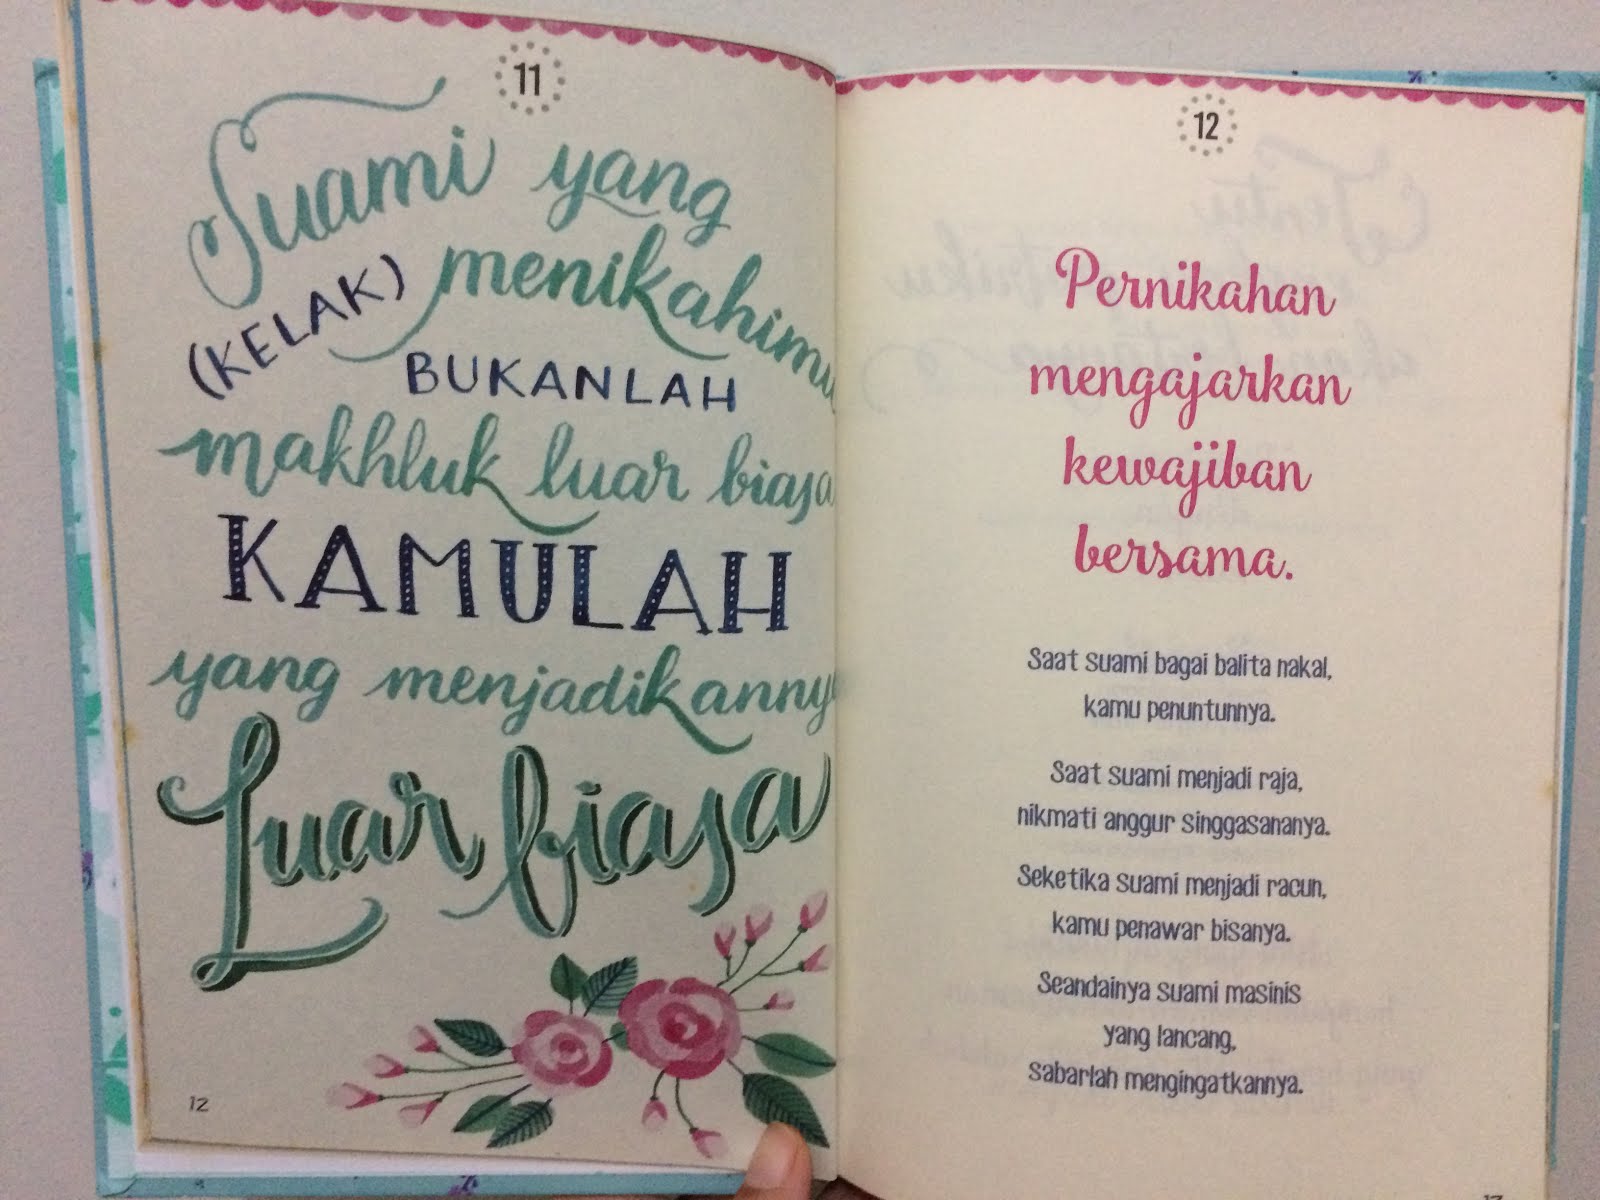 11
Suami yang
(KELAK) menikahimu
BUKANLAH
makhluk luar biasa
KAMULAH
yang menjadikannya
Luar biasa
12
12
Pernikahan
mengajarkan
kewajiban
bersama.
Saat suami bagai balita nakal,
kamu penuntunnya.
Saat suami menjadi raja,
nikmati anggur singgasananya.
Seketika suami menjadi racun,
kamu penawar bisanya.
Seandainya suami masinis
yang lancang,
sabarlah mengingatkannya.